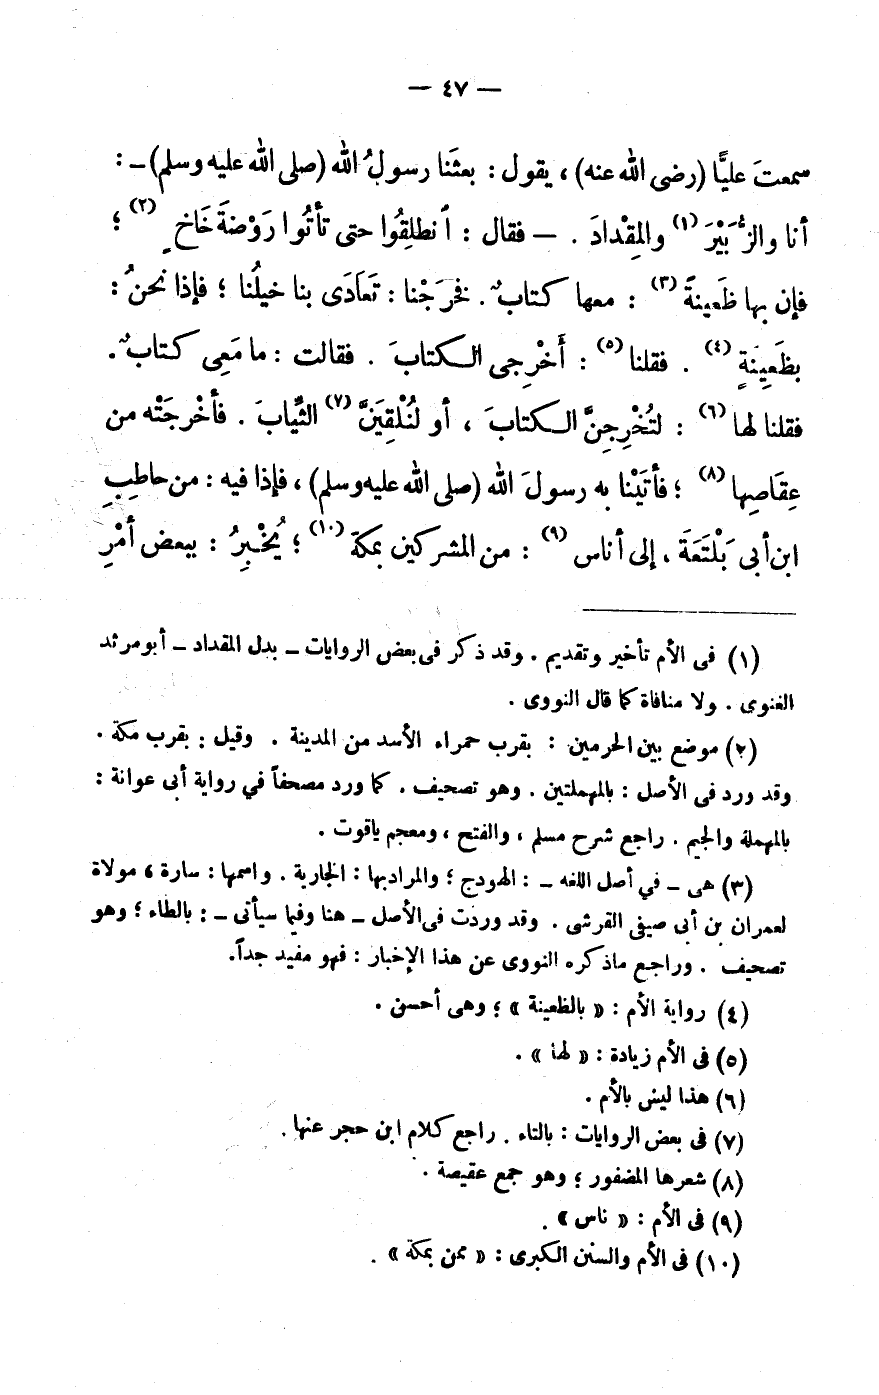 — ٤٧ —
سمعتَ عليًّا (رضى الله عنه) ، يقول : بعثَنا رسولُ الله (صلى الله عليه وسلم) – :
أنا والزُّبَيْرَ (١) والمِقْدادَ . — فقال : ٱنطلِقُوا حتى تأتُوا رَوْضةَ خَاخٍ (٢) ؛
فإن بها ظَعينةً (٣) : معها كتابٌ . فخرَجْنا : تَعَادَى بنا خيلُنا ؛ فإِذا نحنُ :
بظَعِينَةٍ (٤) . فقلنا (٥) : أَخْرِجى الـكتابَ . فقالت : ما مَعِى كتابٌ .
فقلنا لها (٦) : لتُخْرِجِنَّ الـكتابَ ، أو لنُلْقِيَنَّ (٧) الثِّيابَ . فأخْرجَتْه من
عِقَاصِها (٨) ؛ فأتَيْنا به رسولَ الله (صلى الله عليه وسلم) ، فإِذا فيه : من حاطِبِ
ابن أبى بَلْتَعَةَ ، إلى أناس (٩) : من المشركين بمكةَ (١٠) ؛ يُخْبِرُ : ببعض أمْرِ
(١) فى الأم تأخير وتقديم . وقد ذكر فى بعض الروايات – بدل المقداد – أبو مرثد
الغنوى . ولا منافاة كما قال النووى .
(٢) موضع بين الحرمين : بقرب حمراء الأسد من المدينة . وقيل : بقرب مكة .
وقد ورد فى الأصل : بالمهملتين . وهو تصحيف . كما ورد مصحفاً في رواية أبى عوانة :
بالمهملة والجيم . راجع شرح مسلم ، والفتح ، ومعجم ياقوت .
(٣) هى – في أصل اللغه – : الهودج ؛ والمراد بها : الجارية . واسمها : سارة ، مولاة
لعمران بن أبى صيفى القرشى . وقد وردت فى الأصل – هنا وفيما سيأتى – : بالطاء ؛ وهو
تصحيف . وراجع ما ذكره النووى عن هذا الإخبار : فهو مفيد جداً.
(٤) رواية الأم : « بالظعينة » ؛ وهى أحسن .
(٥) فى الأم زيادة : « لها » .
(٦) هذا ليس بالأم .
(٧) فى بعض الروايات : بالتاء . راجع كلام ابن حجر عنها .
(٨) شعرها المضفور ؛ وهو جمع عقيصة .
(٩) فى الأم : « ناس » .
(١٠) فى الأم والسنن الكبرى : « ممن بمكة » .